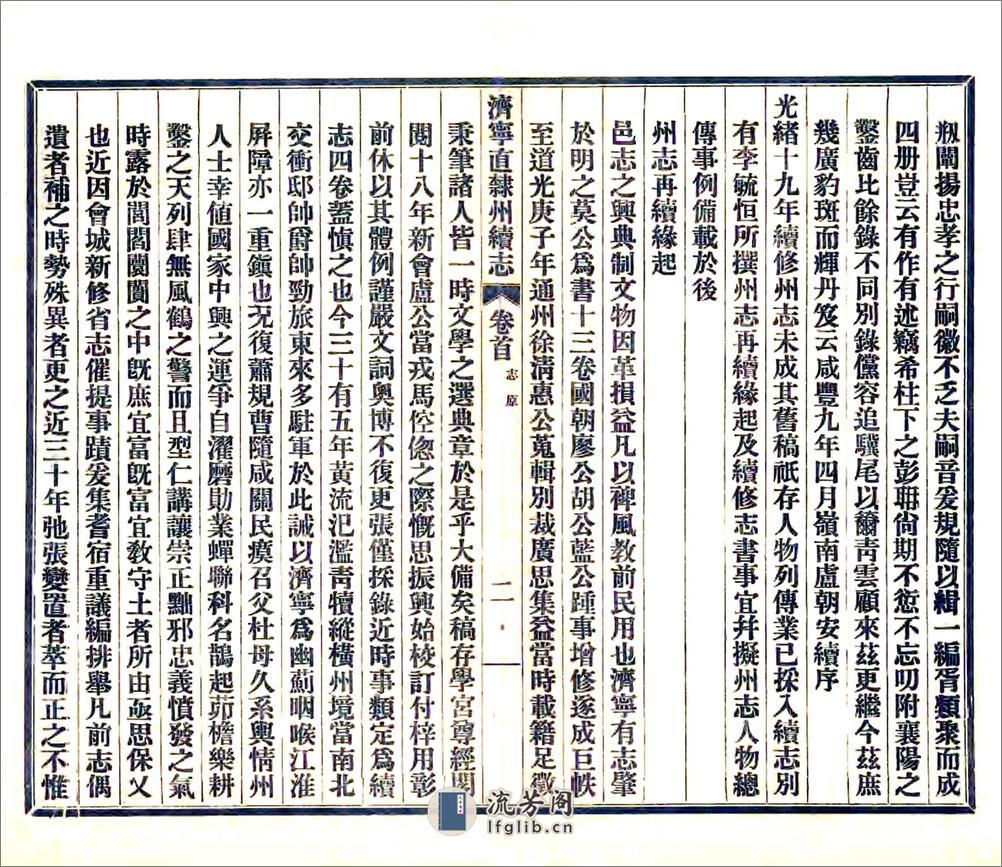 烈闡揚忠孝之行嗣徽不乏夫嗣音爰規隨以輯一編胥類聚而成
四册豈云有作有述竊希柱下之彭聃尙期不愆不忘叨附襄陽之
鑿齒比餘錄不同別錄儻容追驥尾以籋靑雲顧來茲更繼今茲庶
幾廣豹斑而輝丹笈云咸豐九年四月嶺南盧朝安續序
光緒十九年續修州志未成其舊稿祇存人物列傳業已採入續志別
有李毓恒所撰州志再續緣起及續修志書事宜幷擬州志人物總
傳事例備載於後
州志再續緣起
邑志之興典制文物因革損益凡以裨風教前民用也濟寧有志肇
於明之莫公爲書十三卷國朝廖公胡公藍公踵事增修遂成巨帙
至道光庚子年通州徐淸惠公蒐輯別裁廣思集益當時載籍足徵
濟寧直隸州續志 卷首 志原 二
秉筆諸人皆一時文學之選典章於是乎大備矣稿存學宮尊經閣
閱十八年新會盧公當戎馬倥偬之際慨思振興始校訂付梓用彰
前休以其體例謹嚴文詞奧博不復更張僅採錄近時事類定爲續
志四卷蓋愼之也今三十有五年黃流氾濫靑犢縱橫州境當南北
交衝邸帥爵帥勁旅東來多駐軍於此誠以濟寧爲幽薊咽喉江淮
屛障亦一重鎭也況復蕭規曹隨咸關民瘼召父杜母久系輿情州
人士幸値國家中興之運爭自濯磨勛業蟬聯科名鵲起茆檐樂耕
鑿之天列肆無風鶴之警而且型仁講讓崇正黜邪忠義憤發之氣
時露於閭閻闤闠之中旣庶宜富旣富宜敎守土者所由亟思保乂
也近因會城新修省志催提事蹟爰集耆宿重議編排舉凡前志偶
遺者補之時勢殊異者更之近三十年弛張變置者萃而正之不惟
流芳阁
lfglib.cn